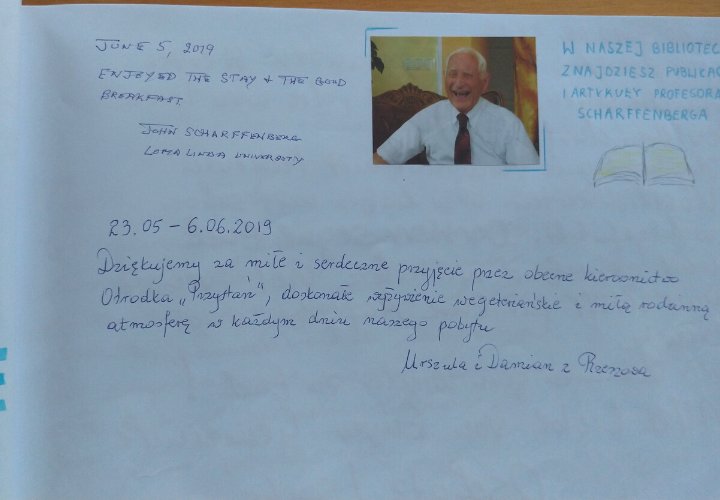 JUNE 5, 2019
ENJOYED THE STAY & THE GOOD
BREAKFAST
JOHN SCHARFFENBERG
LOMA LINDA UNIVERSITY
W NASZEJ BIBLIOTEC
ZNAJDZIESZ PUBLIKAC
I ARTYKUŁY PROFESORA
SCHARFFENBERGA
23.05 – 6.06.2019
Dziękujemy za miłe i serdeczne przyjęcie przez obecne kierownictwo
Ośrodka „Przystań”, doskonałe wyżywienie wegetariańskie i miłą rodzinną
atmosferę w każdym dniu naszego pobytu
Urszula i Damian z Rzeszowa